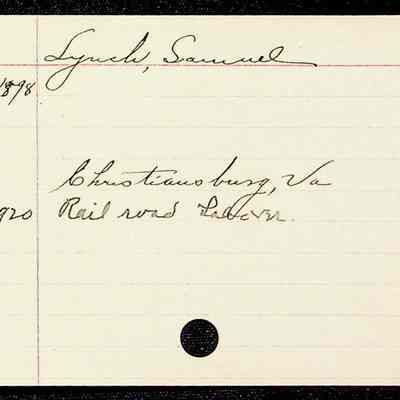 Lynch, Samuel
1898
Christiansburg, Va
920 Rail road Laborer.